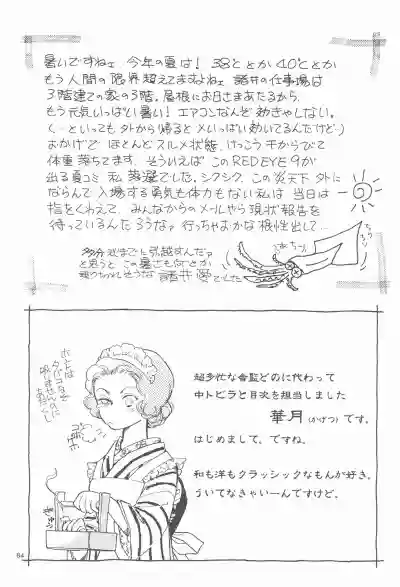 暑いですねェ 今年の夏は! 38ととか40ととか
もう人間の限界超えてますよねェ 諸井の仕事場は
3階建ての家の3階。屋根にお日さまあたるから、
もう元気いっぱい暑い! エアコンなんど効きゃしない。
(…といっても 外から帰ると メいっぱい効いてるんだけど…)
おかげで ほとんどスルメ状態。けっこう 干からびてて
体重落ちてます。そういえば このREDEYE 9が
出る夏コミ 私 落選でした。シクシク。この炎天下 外に
ならんで 入場する勇気も体力もない私は 当日は
指をくわえて、みんなからのメールやら 現状報告を
待っているんだろうなァ 行っちゃおかな 根性出して…
あちーっ
と思うと この暑さも何とか
諸井 愛でした
超多忙な香監どのに代わって
中トビラと目次を担当しました
華月(かげつ)です。
はじめまして、ですね。
和も洋もクラッシックなもんが好き。
ういてなきゃいーんですけど。
ホントは
タバコなど
84